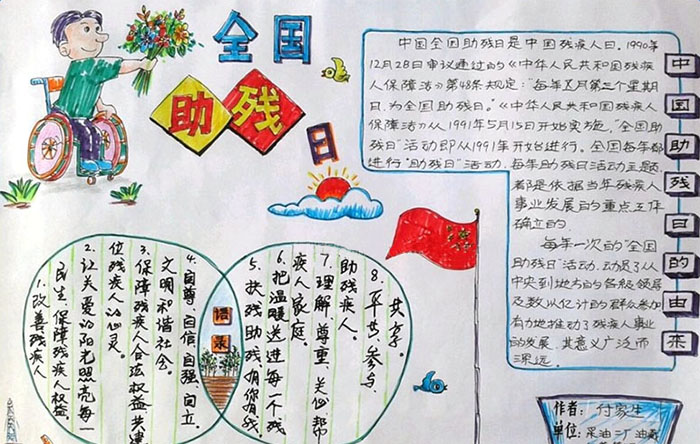 全国
助残
日
中国助残日的由来
中国全国助残日是中国残疾人日。1990年
12月28日审议通过的《中华人民共和国残疾
人保障法》第48条规定:"每年五月第三个星期
日,为全国助残日。"《中华人民共和国残疾人
保障法》从1991年5月15日开始实施,"全国助
残日"活动即从1991年开始进行。全国每年都
进行"助残日"活动,每年助残日活动主题
都是依据当年残疾人
事业发展的重点工作
确立的
每年一次的"全国
助残日"活动,动员了从
中央到地方的各级领导
及数以亿计的群众参加
有力地推动了残疾人事业
的发展,其意义广泛而
深远。
语录
1.改善残疾人
民生,保障残疾人权益。
2.让关爱的阳光照亮每一
位残疾人的心灵。
3.保障残疾人合法权益,共建
文明和谐社会。
4.自尊、自信、自强、自立。
5.扶残助残,有你有我。
6.把温暖送进每一个残
疾人家庭。
7.理解、尊重、关心、帮
助残疾人。
8.平共、参与、
共享。
作者:付家生
单位:采油